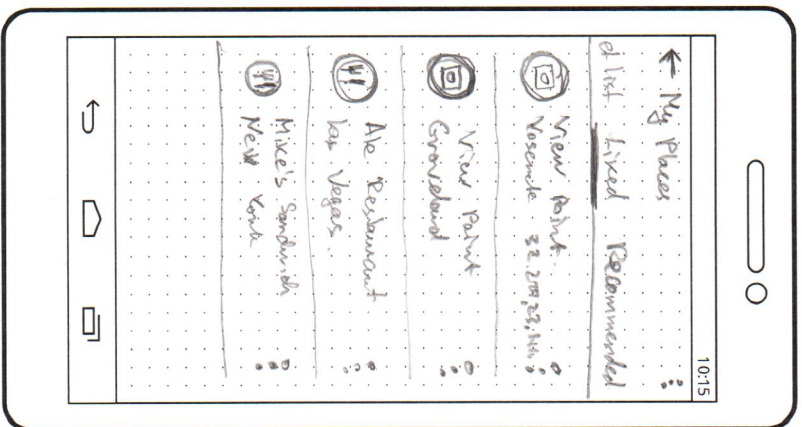 10:15
← My Places
d list Liked Recommended
View Point
Yosemite
View Point
Groveland
Restaurant
Las Vegas
Mike's Sandwich
New York